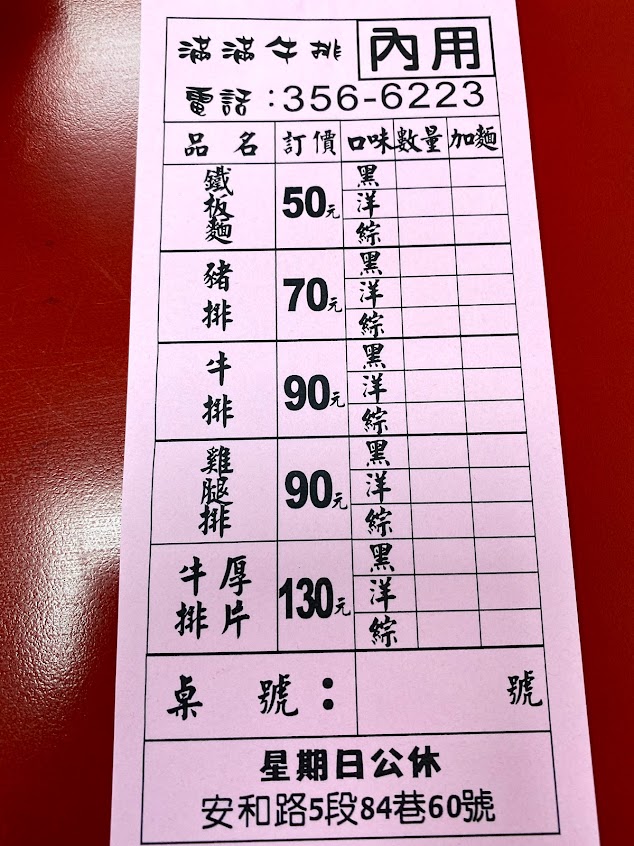 滿滿牛排 內用
電話:356-6223
品名 訂價 口味 數量 加麵
鐵板麵 50元 黑
洋
綜
豬排 70元 黑
洋
綜
牛排 90元 黑
洋
綜
雞腿排 90元 黑
洋
綜
厚片牛排 130元 黑
洋
綜
桌號: 號
星期日公休
安和路5段84巷60號